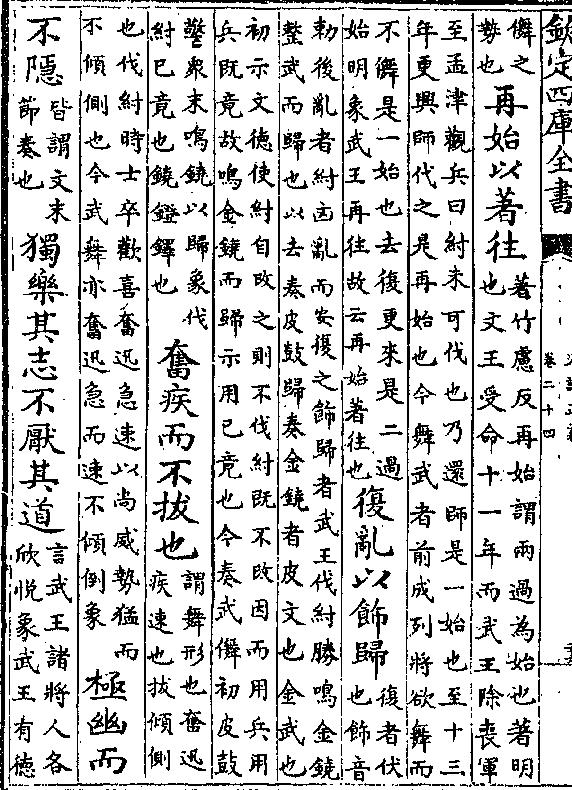 欽定四庫全書
卷二十四
儛之
勢也
再始以著往
著竹慮反再始謂兩過為始也著明
也文王受命十一年而武王除喪軍
至孟津觀兵曰紂未可伐也乃還師是一始也至十三
年更興師伐之是再始也今舞武者前成列將欲舞而
不儛是一始也去復更來是二過
始明象武王再往故云再始著往也
復亂以飾歸
復者伏
也飾音
勅後亂者紂凶亂而安復之飾歸者武王伐紂勝鳴金鐃
整武而歸也以去奏皮鼓歸奏金鐃者皮文也金武也
初示文德使紂自改之則不伐紂既不改因而用兵用
兵既竟故鳴金鐃而歸示用已竟也今奏武儛初皮鼓
警衆末鳴鐃以歸象伐
紂已竟也鐃鐙鐸也
奮疾而不拔也
謂舞形也奮迅
疾速也拔傾側
也伐紂時士卒歡喜奮迅急速以尚威勢猛而
不傾側也今武舞亦奮迅急而速不傾倒象
極幽而
不隱
皆謂文末
節奏也
獨樂其志不厭其道
言武王諸將人各
欣悅象武王有德